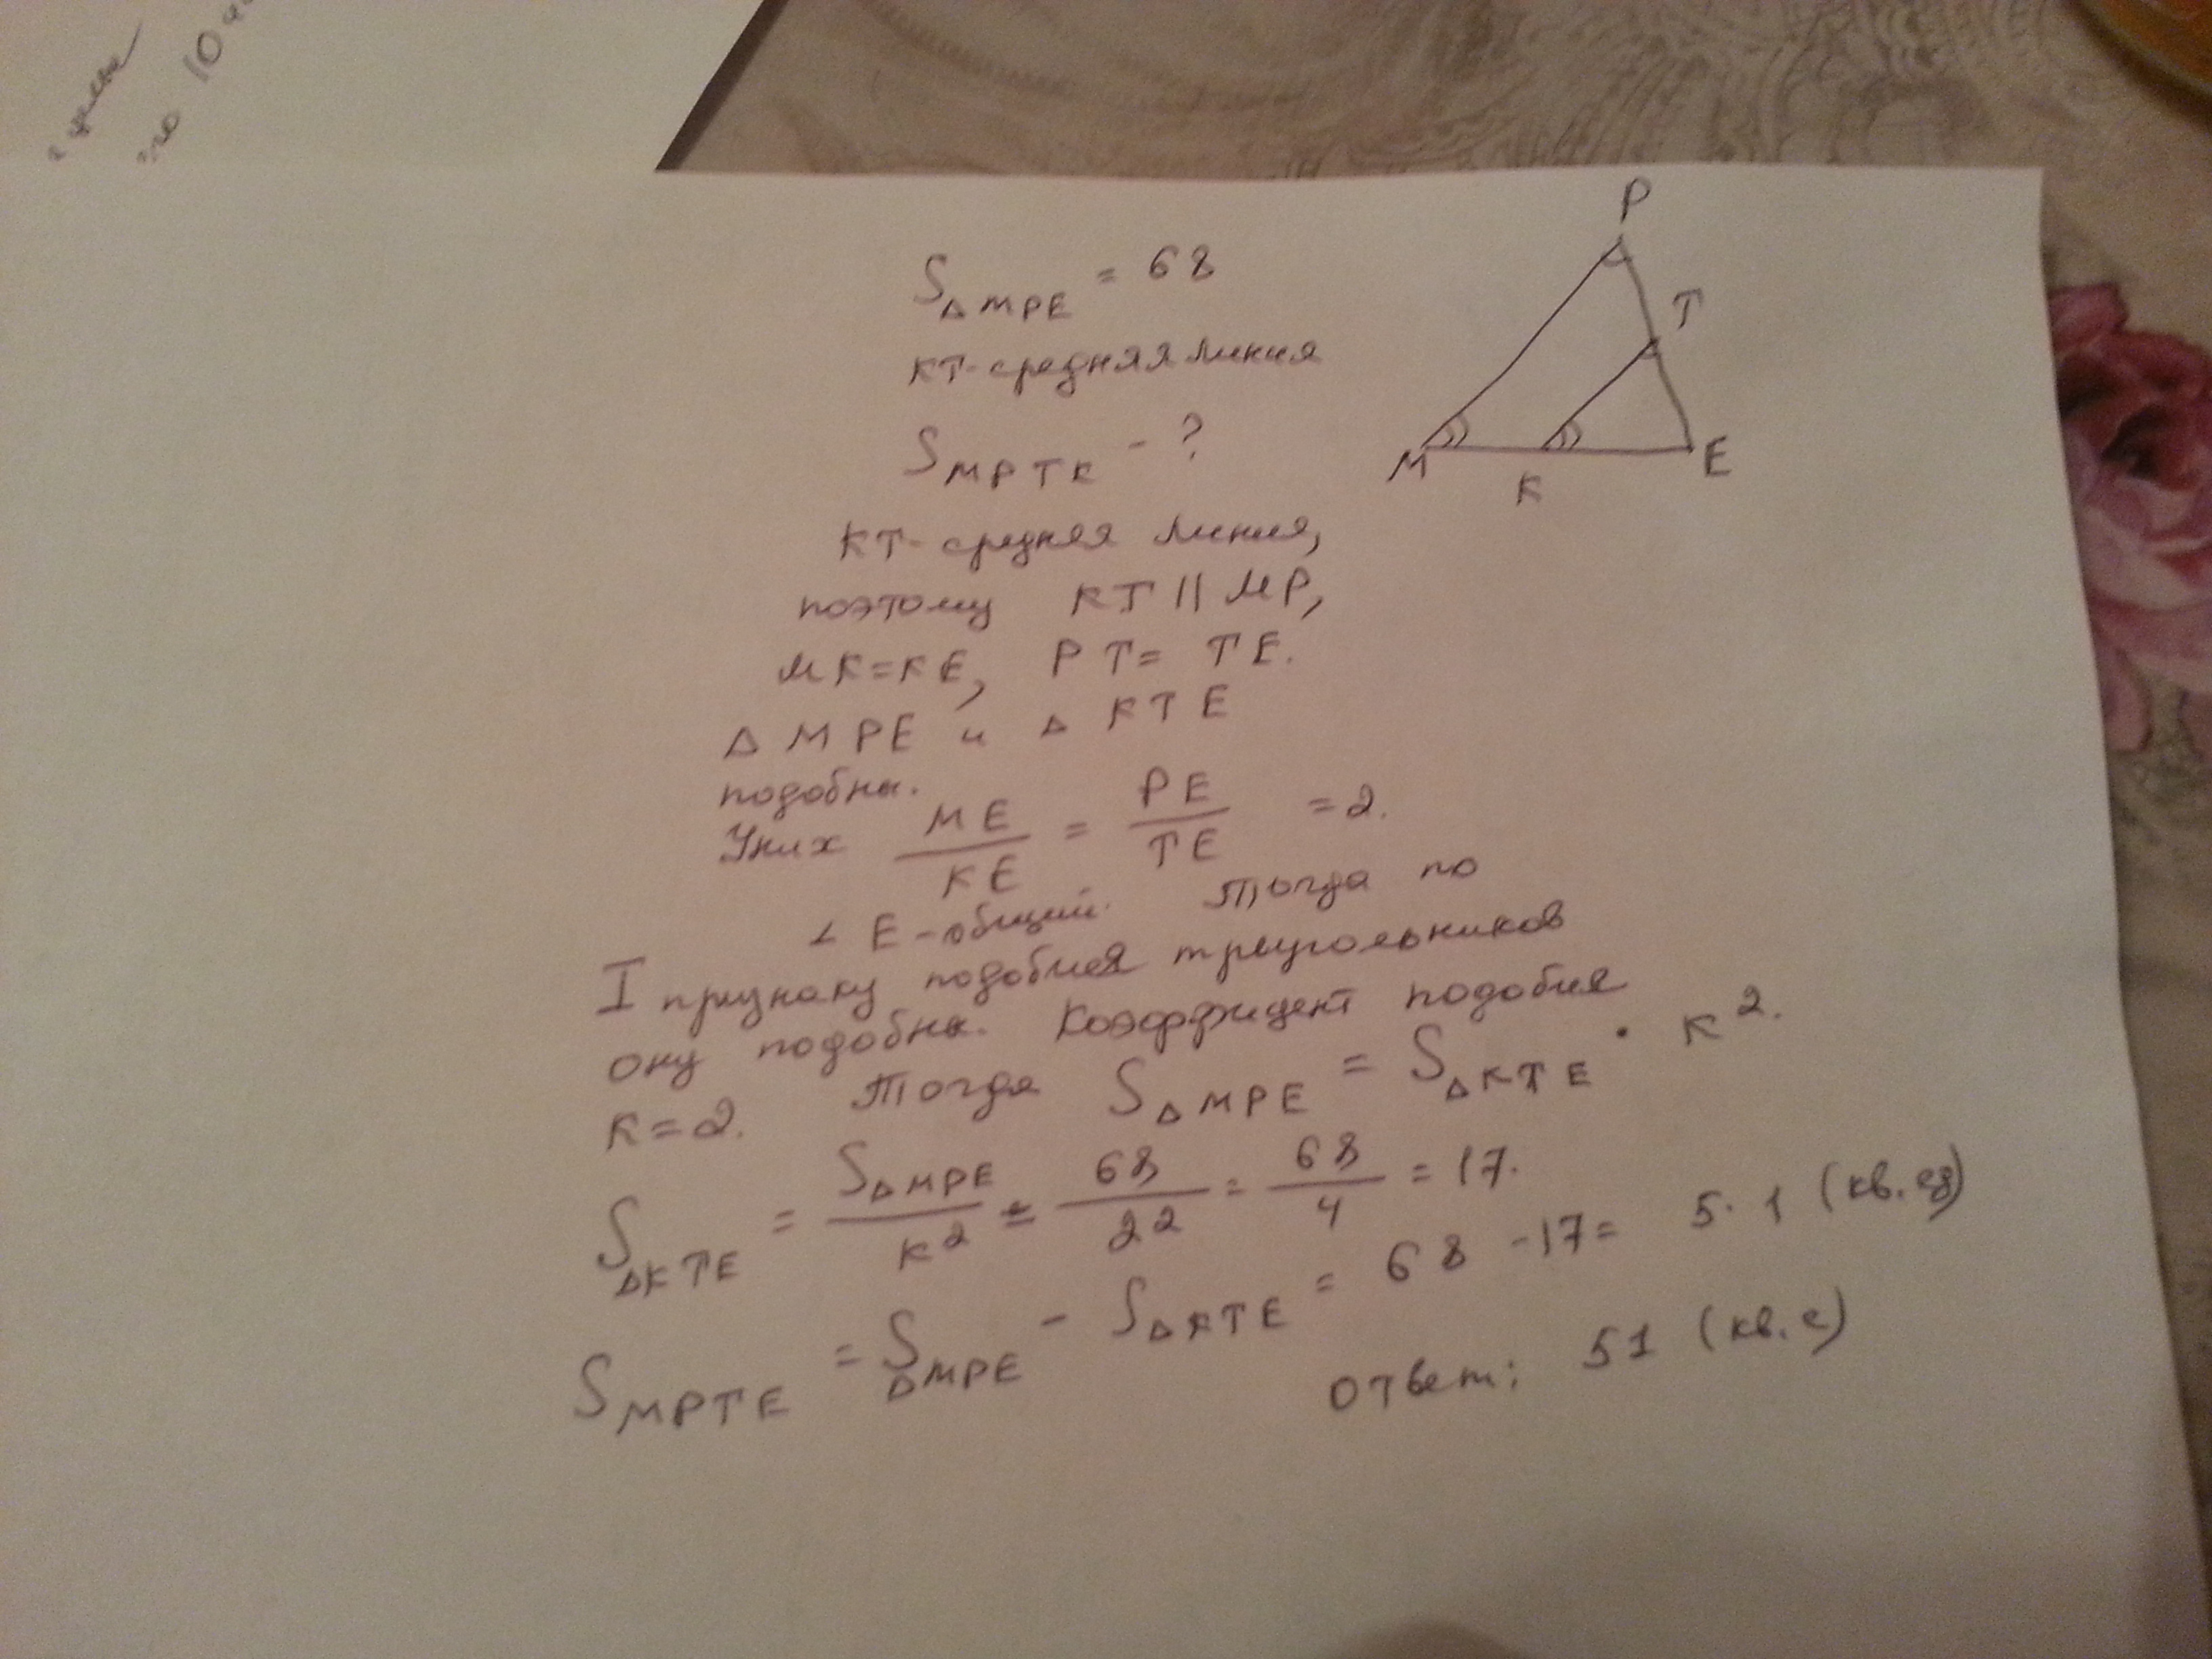 по 10
S△MPE = 68
КТ-средняя линия
SMPTK - ?
P
T
M
K
E
КТ- средняя линия,
поэтому КТ || МР,
МК=КЕ, РТ= ТЕ.
△ МРЕ и △ КТЕ
подобны.
У них ME/KE = PE/TE = 2.
∠ E-общий. Тогда по
I признаку подобия треугольников
ону подобны. Коэффидент подобия
К=2. Тогда S△MPE = S△KTE · K².
S△KTE = S△MPE/K² = 68/2² = 68/4 = 17.
SMPTE = S△MPE - S△KTE = 68 -17= 5.1 (кв. ед)
Ответ: 51 (кв. е)